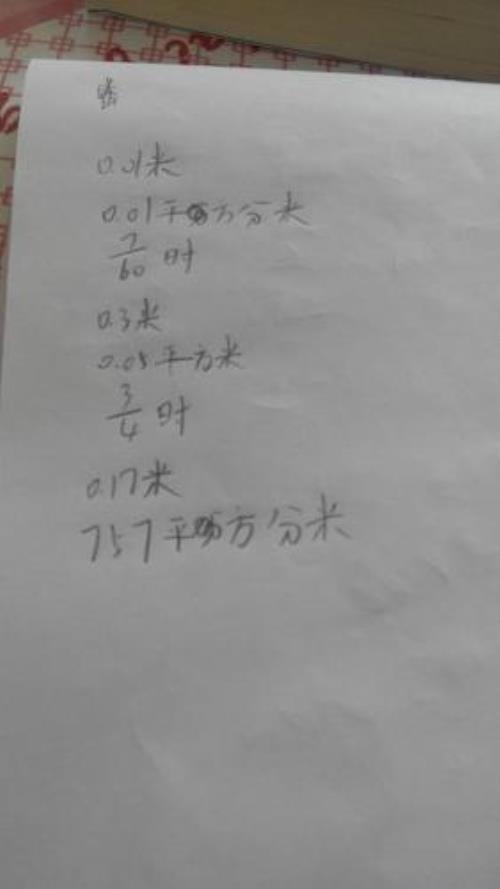 0.01米
0.01平方分米
7/60时
0.3米
0.05平方米
3/4时
0.17米
757平方分米